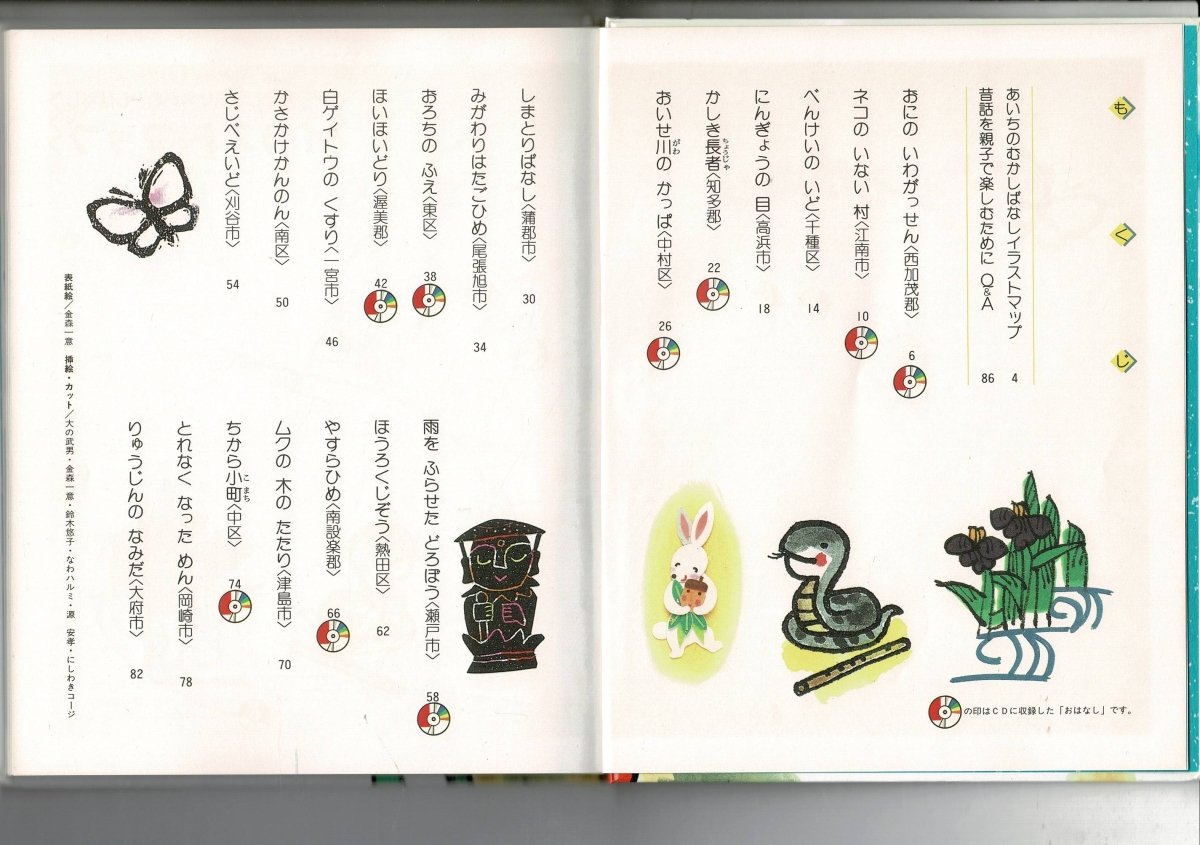 もくじ
あいちのむかしばなしイラストマップ 4
昔話を親子で楽しむために Q&A 86
おにの いわがっせん〈西加茂郡〉 6
ネコの いない 村〈江南市〉 10
べんけいの いど〈千種区〉 14
にんぎょうの 目〈高浜市〉 18
かしき長者〈知多郡〉 22
ちょうじゃ
おいせ川の かっぱ〈中村区〉 26
がわ
の印はCDに収録した「おはなし」です。
しまとりばなし〈蒲郡市〉 30
みがわりはたごひめ〈尾張旭市〉 34
おろちの ふえ〈東区〉 38
ほいほいどり〈渥美郡〉 42
白ゲイトウの くすり〈一宮市〉 46
かさかけかんのん〈南区〉 50
さじべえいど〈刈谷市〉 54
雨を ふらせた どろぼう〈瀬戸市〉 58
ほうろくじぞう〈熱田区〉 62
やすらひめ〈南設楽郡〉 66
ムクの 木の たたり〈津島市〉 70
ちから小町〈中区〉 74
こまち
とれなく なった めん〈岡崎市〉 78
りゅうじんの なみだ〈大府市〉 82
表紙絵/金森一意 挿絵・カット/大の武男・金森一意・鈴木悠子・なわハルミ・源 安孝・にしわきコージ